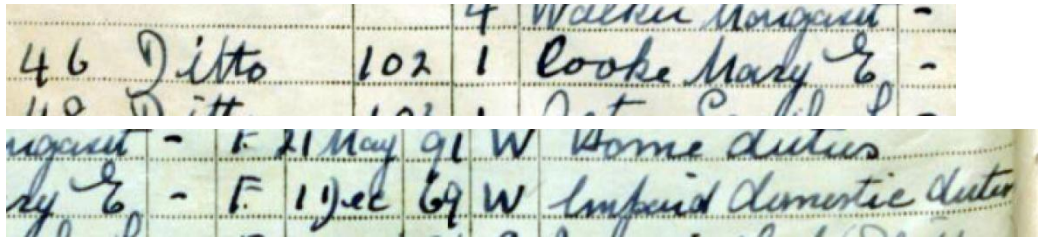 4 Walker Margaret -
46 Ditto 102 1 Cooke Mary E. -
48 Ditto 1
- F. 21 May 91 W Home duties
ry E - F. 1 Dec 69 W Unpaid domestic duties